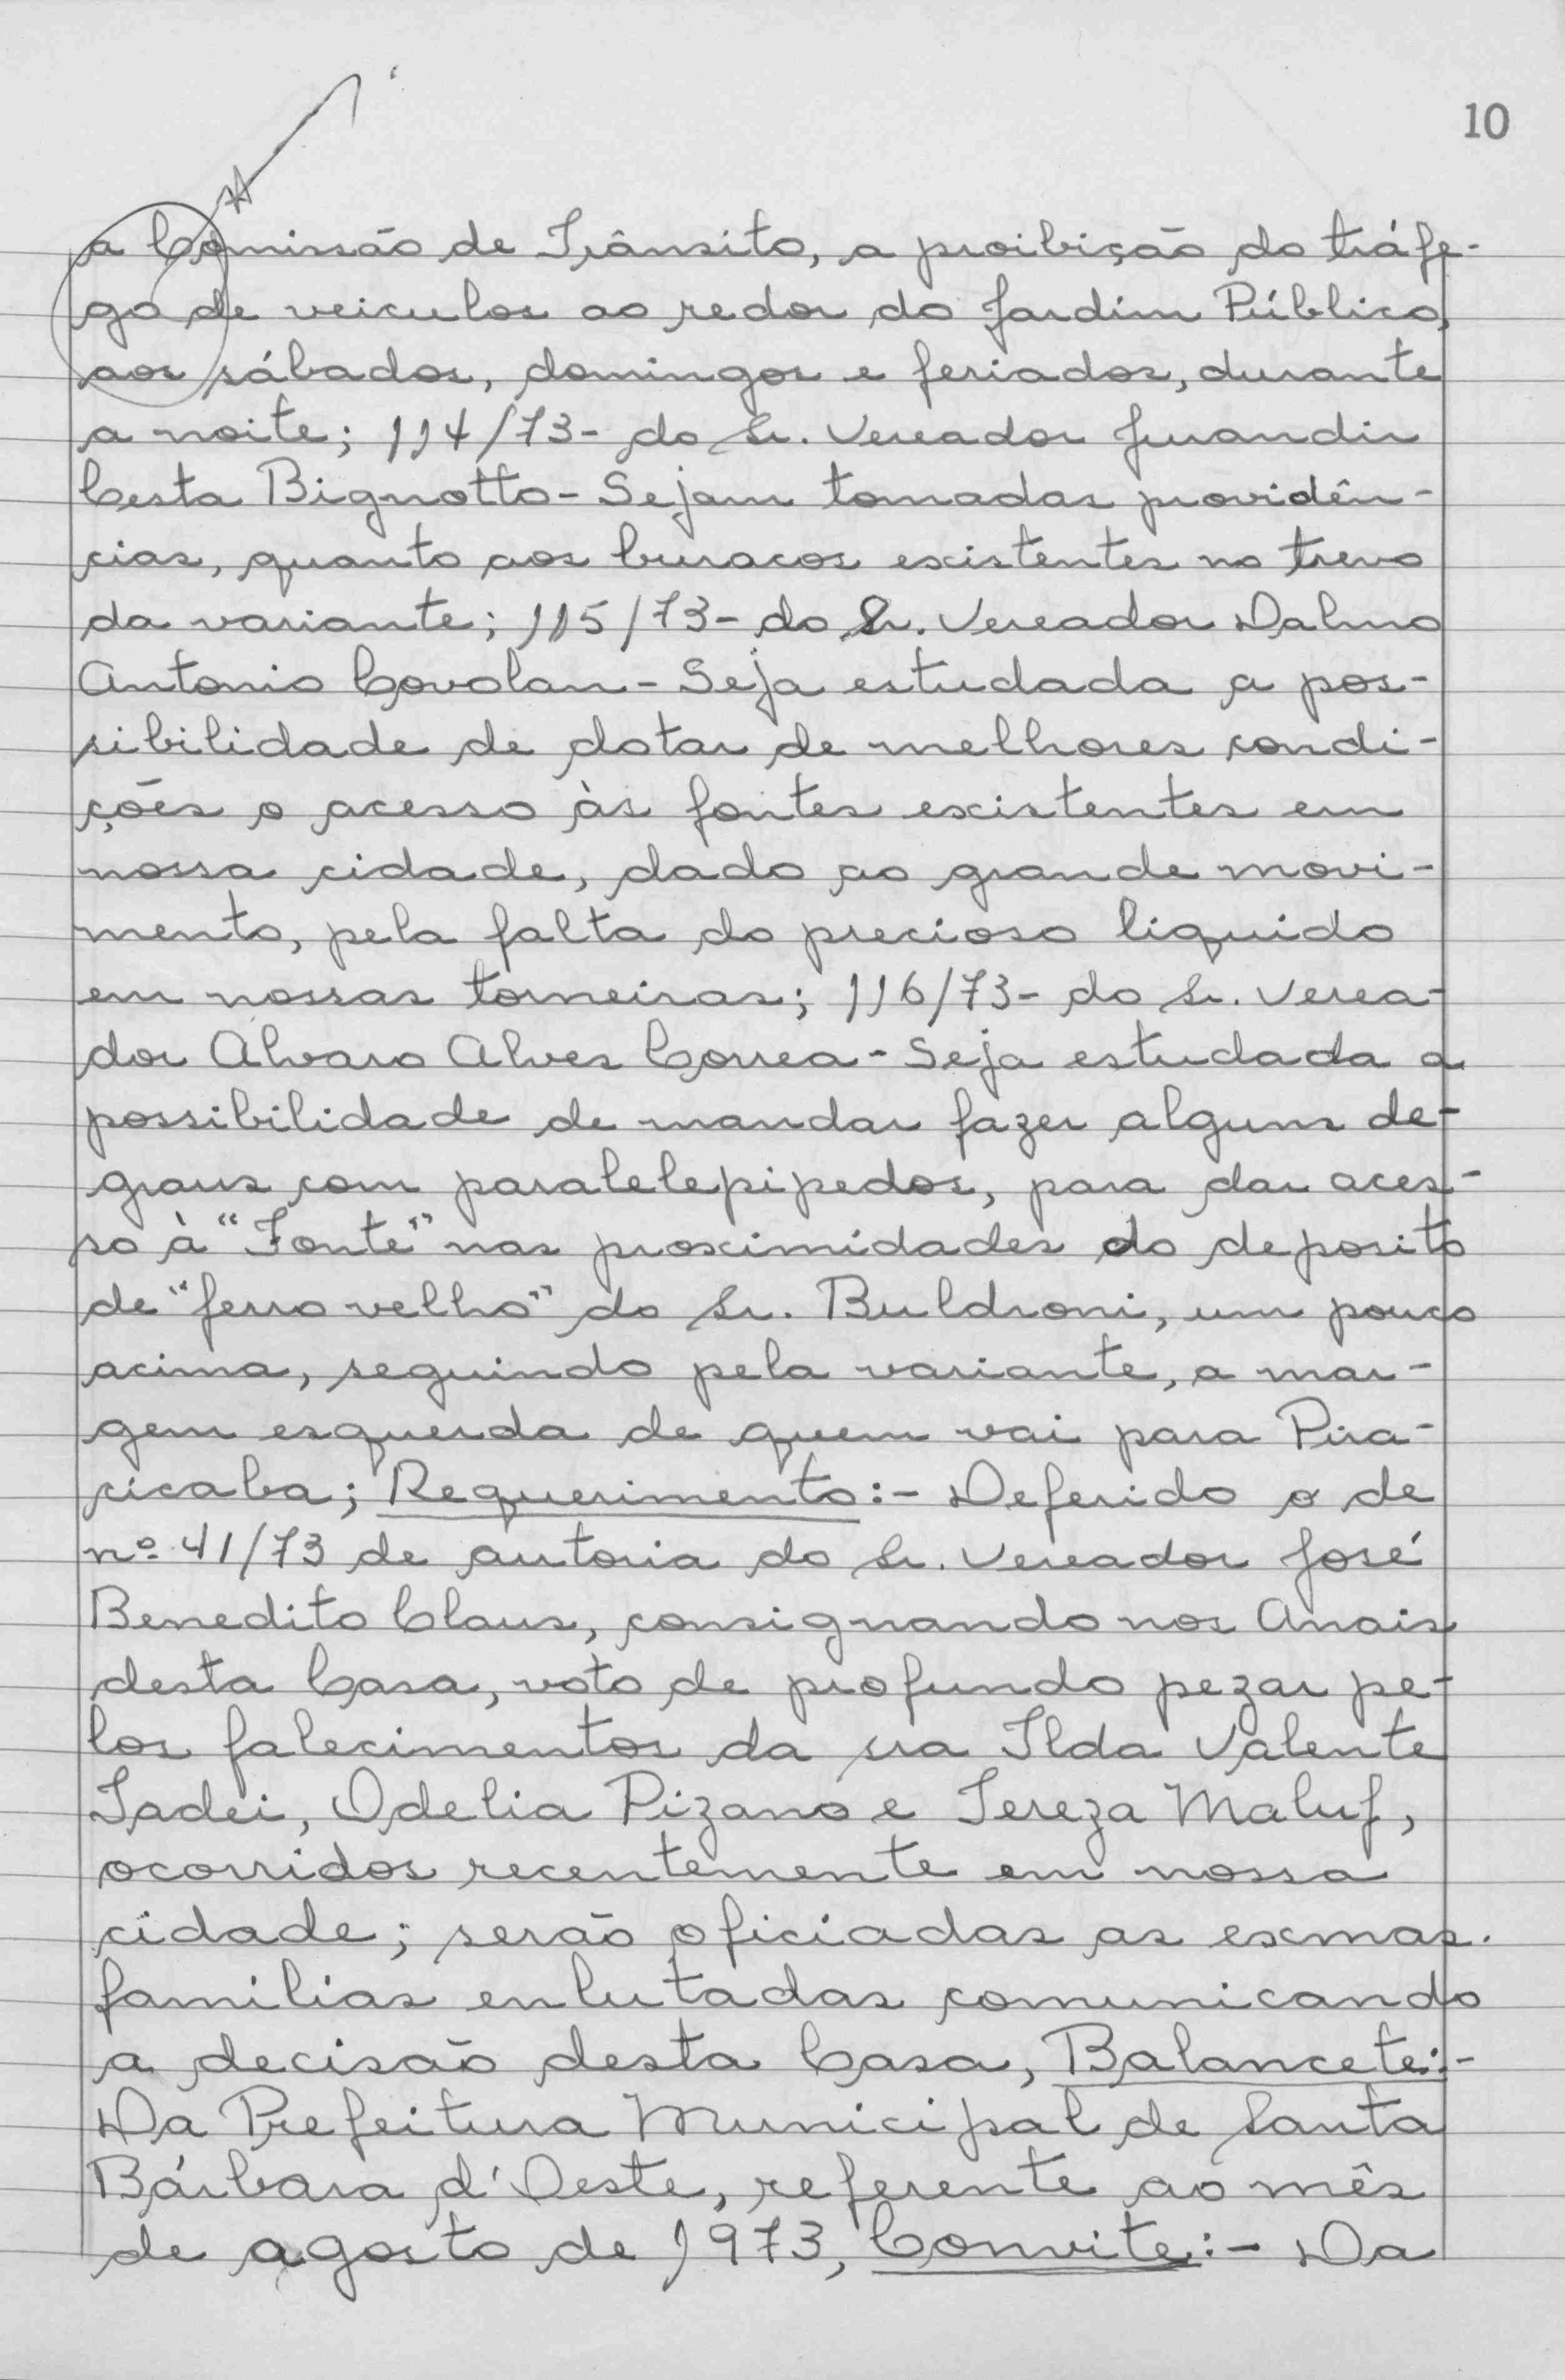 10
a Comissão de Trânsito, a proibição do tráfe-
go de veiculos ao redor do Jardim Público,
aos sábados, domingos e feriados, durante
a noite; 114/73- do Sr. Vereador Jurandir
Cesta Bignotto- Sejam tomadas providên-
cias, quanto aos buracos existentes no trevo
da variante; 115/73- do Sr. Vereador Dalmo
Antonio Covolan- Seja estudada a pos-
sibilidade de dotar de melhores condi-
ções o acesso às fontes existentes em
nossa cidade, dado ao grande movi-
mento, pela falta do precioso liquido
em nossas torneiras; 116/73- do Sr. Verea-
dor Alvaro Alves Correa- Seja estudada a
possibilidade de mandar fazer alguns de-
graus com paralelepipedos, para dar aces-
so à "Fonte" nas proximidades do deposito
de "ferro velho" do Sr. Buldroni, um pouco
acima, seguindo pela variante, a mar-
gem esquerda de quem vai para Pira-
cicaba; Requerimento:- Deferido o de
nº 41/73 de autoria do Sr. Vereador José
Benedito Claus, consignando nos Anais
desta Casa, voto de profundo pezar pe-
los falecimentos da sra Ilda Valente
Tadei, Odelia Pizano e Tereza Maluf,
ocorridos recentemente em nossa
cidade; serão oficiadas as exmas.
familias enlutadas comunicando
a decisão desta Casa, Balancete:-
Da Prefeitura Municipal de Santa
Bárbara d'Oeste, referente ao mês
de agosto de 1973, Convite:- Da